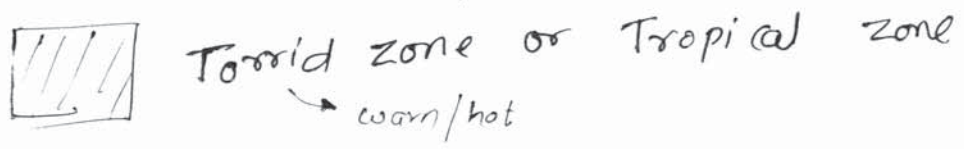 Torrid zone or Tropical zone
warn/hot